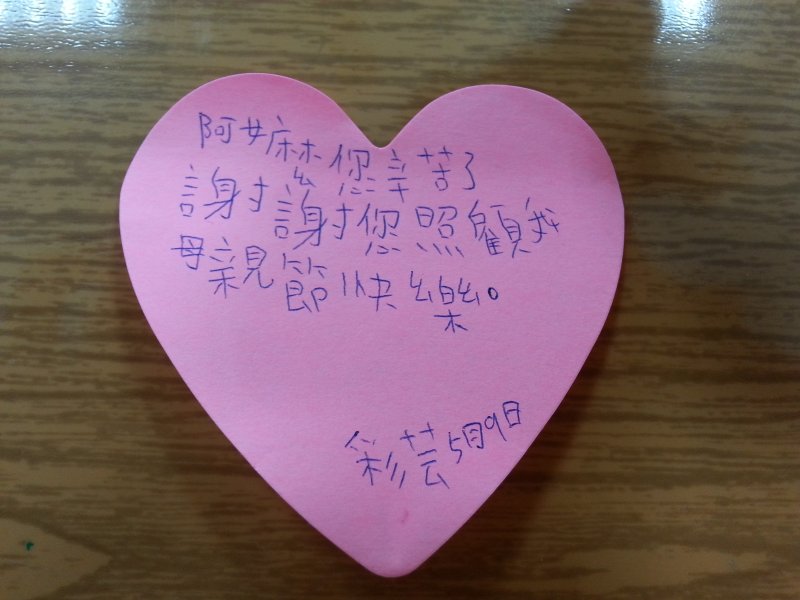 阿嬤您辛苦了
謝謝您照顧我
母親節快樂。
彩芸5月9日